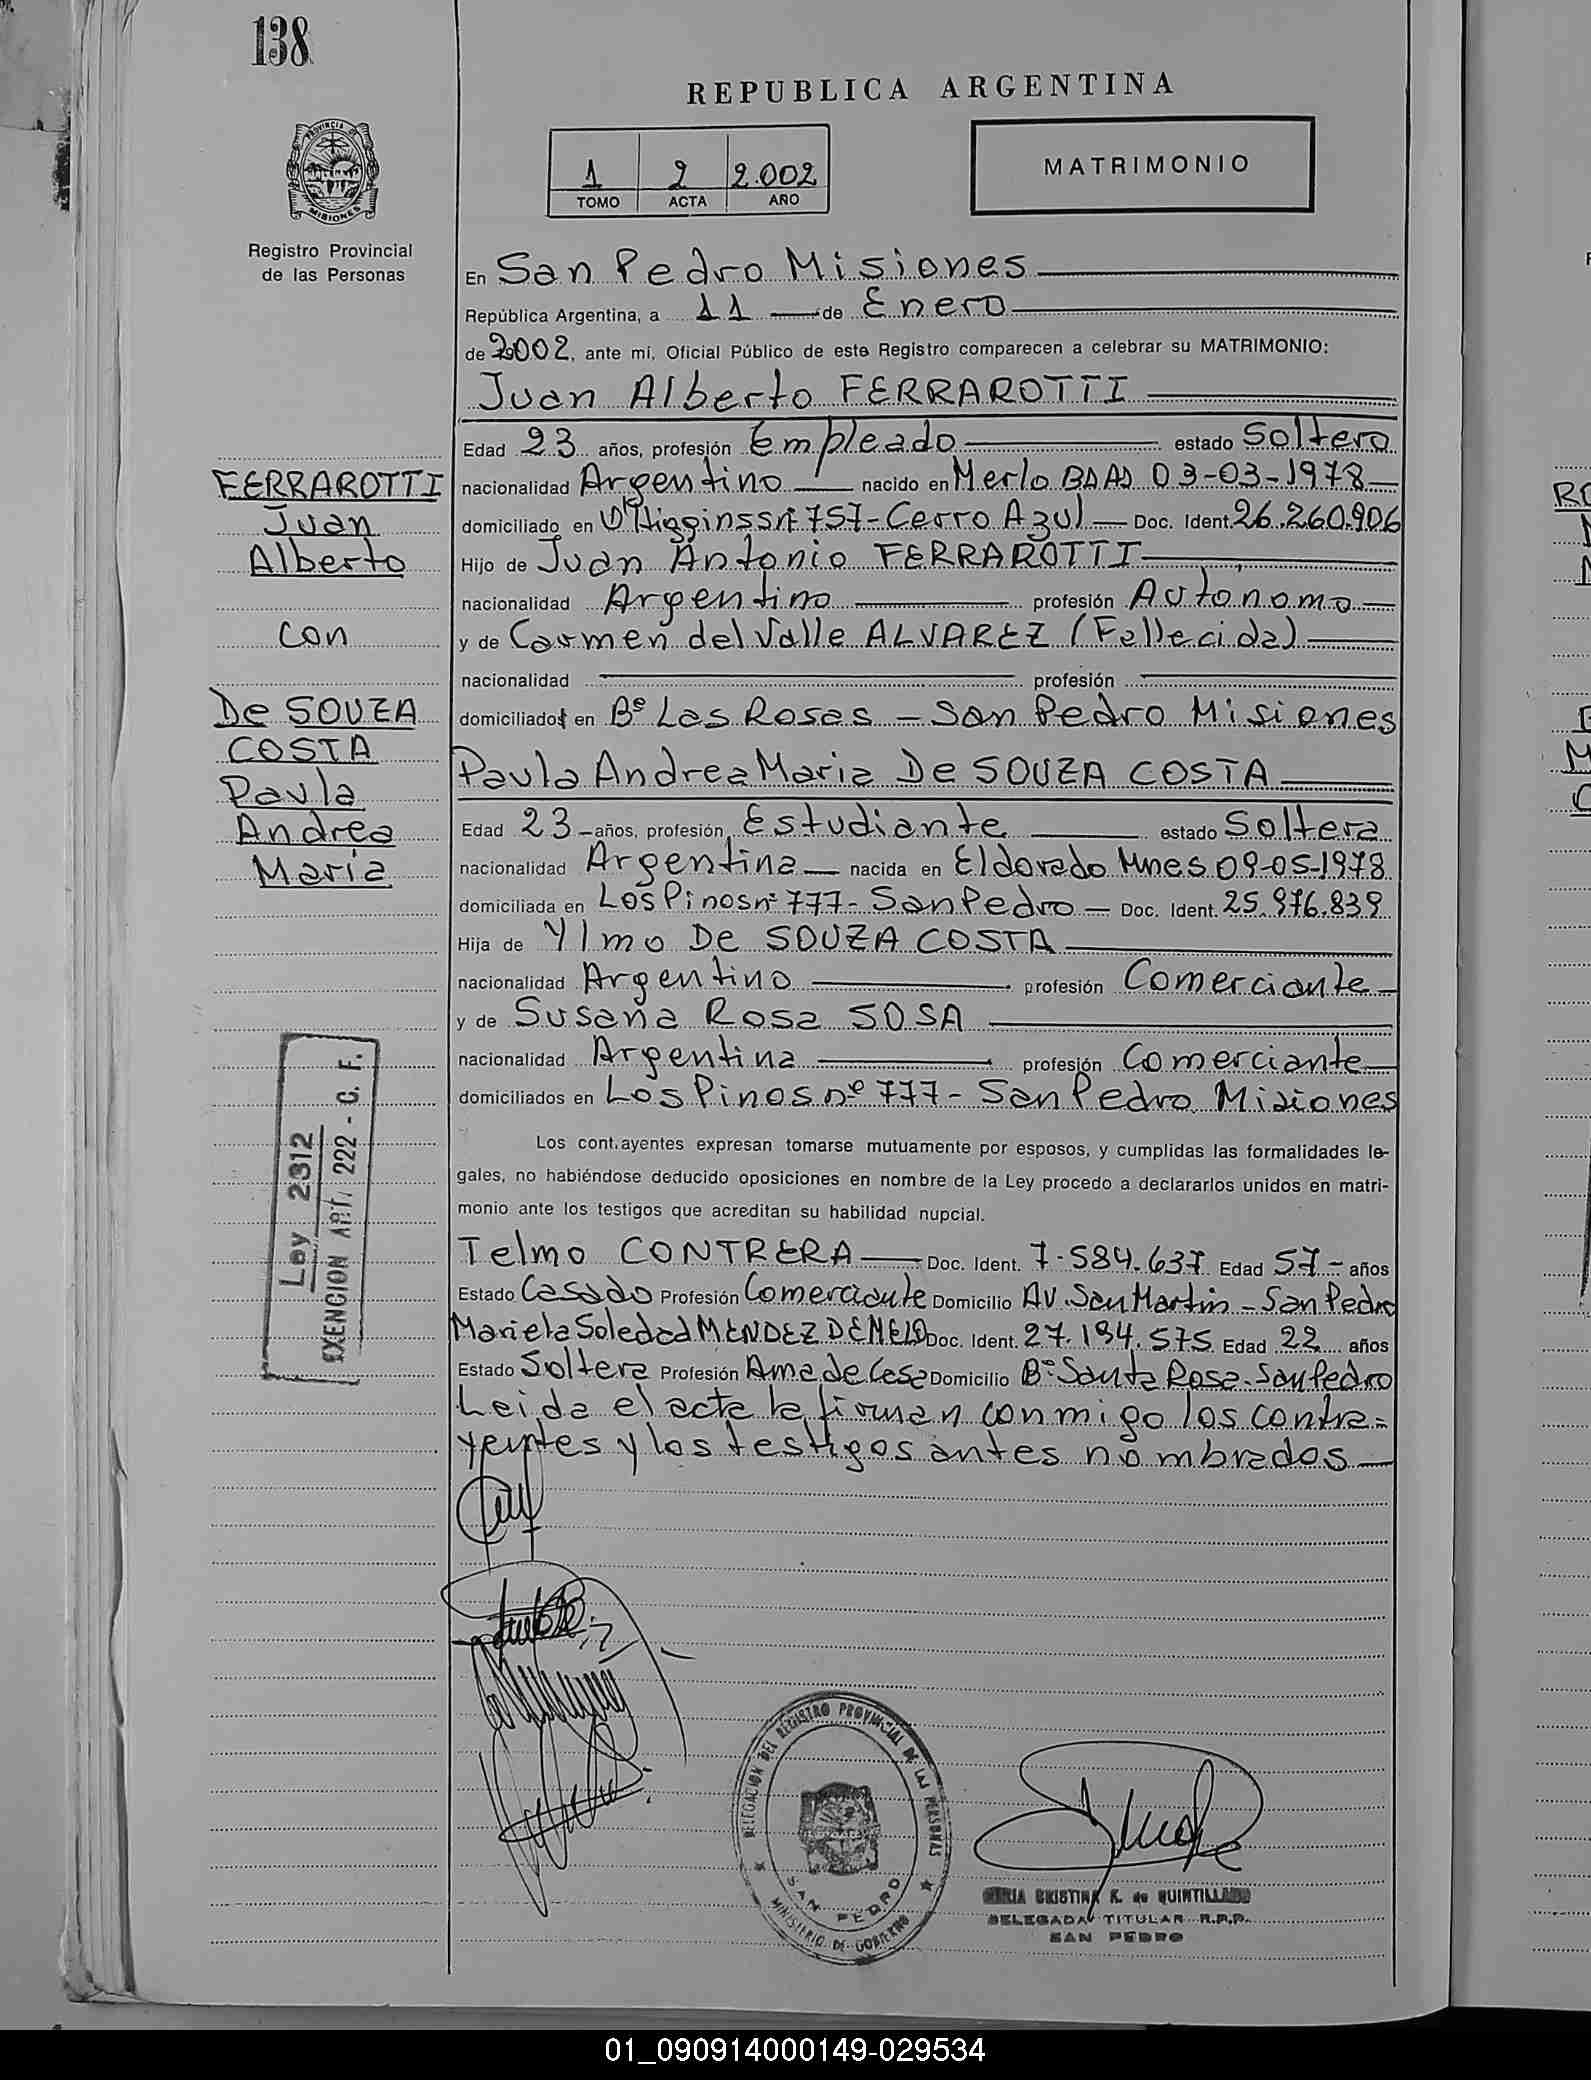 138
REPUBLICA ARGENTINA
PROVINCIA DE
MISIONES
Registro Provincial
de las Personas
1 2 2.002
TOMO ACTA AÑO
MATRIMONIO
En San Pedro Misiones
República Argentina, a 11 de Enero
de 2002, ante mí, Oficial Público de este Registro comparecen a celebrar su MATRIMONIO:
Juan Alberto FERRAROTTI
Edad 23 años, profesión Empleado estado Soltero
nacionalidad Argentino nacido en Merlo BSAS 03-03-1978
domiciliado en O'Higgins nº 757-Cerro Azul Doc. Ident. 26.260.906
Hijo de Juan Antonio FERRAROTTI
nacionalidad Argentino profesión Autónomo
y de Carmen del Valle ALVAREZ (Fallecida)
nacionalidad profesión
domiciliado en Bº Las Rosas - San Pedro Misiones
Paula Andrea Maria De SOUZA COSTA
Edad 23 años, profesión Estudiante estado Soltera
nacionalidad Argentina nacida en Eldorado Mnes 09-05-1978
domiciliada en Los Pinos nº 777- San Pedro Doc. Ident. 25.976.839
Hija de Ylmo De SOUZA COSTA
nacionalidad Argentino profesión Comerciante
y de Susana Rosa SOSA
nacionalidad Argentina profesión Comerciante
domiciliados en Los Pinos nº 777- San Pedro Misiones
Los cont.ayentes expresan tomarse mutuamente por esposos, y cumplidas las formalidades le-
gales, no habiéndose deducido oposiciones en nombre de la Ley procedo a declararlos unidos en matri-
monio ante los testigos que acreditan su habilidad nupcial.
Telmo CONTRERA Doc. Ident. 7.584.637 Edad 57 - años
Estado Casado Profesión Comerciante Domicilio AV. San Martin - San Pedro
Mariela Soledad MENDEZ DE MELO Doc. Ident. 27.194.575 Edad 22 años
Estado Soltera Profesión Ama de Casa Domicilio Bº Santa Rosa - San Pedro
Leida el acta la firman conmigo los contra-
yentes y los testigos antes nombrados
FERRAROTTI
Juan
Alberto
con
De SOUZA
COSTA
Paula
Andrea
María
Ley 2312
EXENCION ART. 222 - C. F.
DELEGACION DEL REGISTRO PROVINCIAL DE LAS PERSONAS
SAN PEDRO
MINISTERIO DE GOBIERNO
MARIA CRISTINA K. de QUINTILLADO
DELEGADA TITULAR R.P.P.
SAN PEDRO
01_090914000149-029534